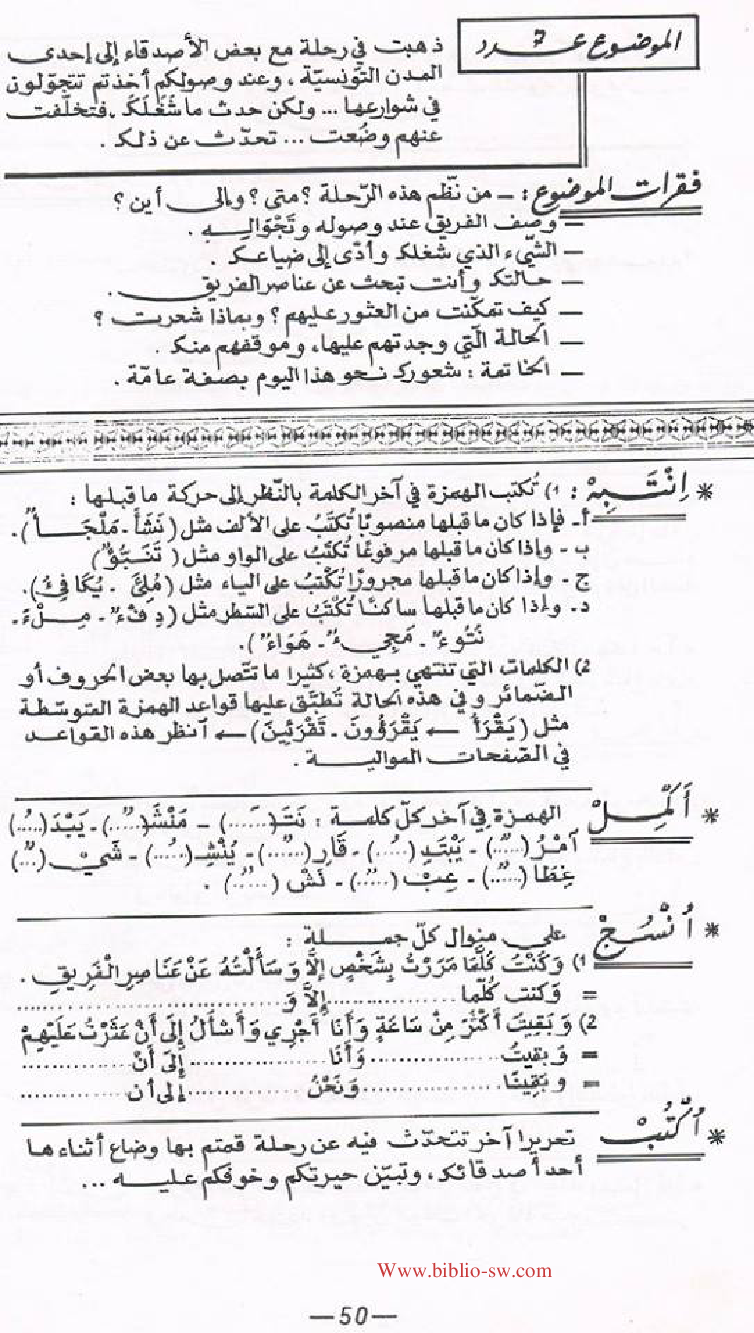 الموضوع عدد 7
ذهبت في رحلة مع بعض الأصدقاء إلى إحدى
المدن التونسيّة ، وعند وصولكم أخذتم تتجوّلون
في شوارعها ... ولكن حدث ما شَغَلَكَ . فتخلّفت
عنهم وضُعت ... تحدّث عن ذلك .
فقرات الموضوع : – من نظّم هذه الرّحلة ؟ متى ؟ وإلى أين ؟
– وصف الفريق عند وصوله وتَجْوَالِهِ .
– الشّيء الذي شغلك وأدّى إلى ضياعك .
– حالتك وأنت تبحث عن عناصر الفريق .
– كيف تمكّنت من العثور عليهم ؟ وبماذا شعرت ؟
– الحالة الّتي وجدتهم عليها، وموقفهم منك .
– الخاتمة : شعورك نحو هذا اليوم بصفة عامّة .
* اِنْتَبِهْ : 1) تُكتب الهمزة في آخر الكلمة بالنّظر إلى حركة ما قبلها :
أ- فإذا كان ما قبلها منصوبًا تُكتَبُ على الألف مثل ( نَشَأَ - مَلْجَأٌ ) .
ب - وإذا كان ما قبلها مرفوعًا تُكْتَبُ على الواو مثل ( تَنَبُّؤٌ )
ج - وإذا كان ما قبلها مجرورًا تُكْتَبُ على الياء مثل ( مُلِئَ - يُكَافِئُ ).
د - وإذا كان ما قبلها ساكنًا تُكْتَبُ على السّطر مثل ( دِفْءٌ - مِلْءَ -
نُتُوءٌ - مَجِيءٌ - هَوَاءٌ ) .
2) الكلمات التي تنتهي بهمزة ، كثيرا ما تتّصل بها بعض الحروف أو
الضّمائر وفي هذه الحالة تُطَبَّق عليها قواعد الهمزة المتوسّطة
مثل ( يَقْرَأُ ← يَقْرَؤُونَ - تَقْرَئِينَ ) ← أنظر هذه القواعد
في الصّفحات الموالية .
* أَكْمِلْ الهمزة في آخر كلّ كلمة : نَتَـ(....َ..) – مَنْشَـ(...ٌ..) - يَبْدَ(...ُ..)
اَمْرُ(...ٌ..) - يَبْتَدِ(...ُ..) - قَارِ(...ٌ..) - يُنْشِـ(...ُ..) - شَيْـ(...ٌ..)
غِطَا(...ٌ..) - عِبْـ(...ٌ..) - نَشْـ(...ٌ..) .
* اُنْسُجْ على منوال كلّ جملة :
1) وَكُنْتُ كُلَّمَا مَرَرْتُ بِشَخْصٍ إِلاَّ وَسَأَلْتُهُ عَنْ عَنَاصِرِ الْفَرِيقِ .
= وَكنت كُلّما .................... إِلاَّ وَ ....................................
2) وَبَقِيتُ أَكْثَرَ مِنْ سَاعَةٍ وَأَنَا أَجْرِي وَأَسْأَلُ إِلَى أَنْ عَثَرْتُ عَلَيْهِمْ
= وَبقيتُ .................... وَأَنَا .................... إِلَى أَنْ ....................
= وبَقِينَا .................... وَنَحْنُ .................... إلى أن ....................
* اُكْتُبْ تحريرا آخر تتحدّث فيه عن رحلة قمتم بها وضاع أثناءها
أحد أصدقائك ، وتبيّن حيرتكم وخوفكم عليه ...
Www.biblio-sw.com
—50—